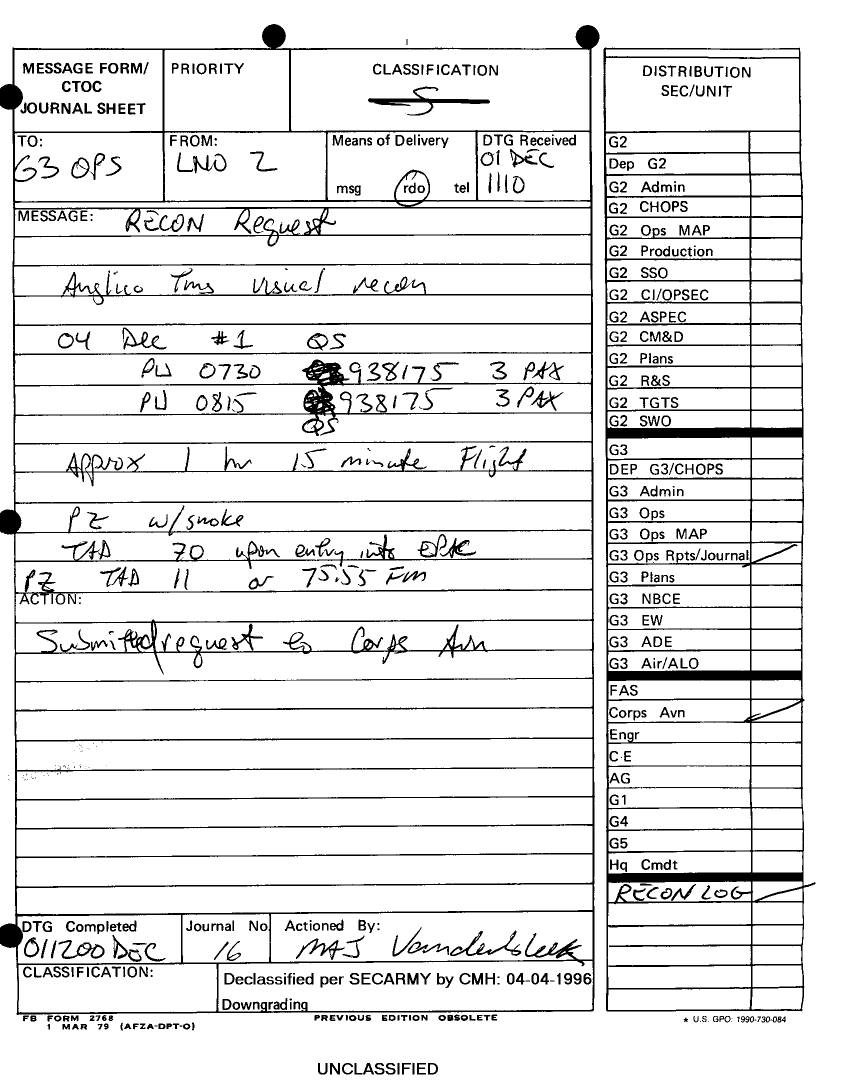 MESSAGE FORM/ CTOC JOURNAL SHEET
PRIORITY
CLASSIFICATION
S
TO:
G3 OPS
FROM:
LNO 2
Means of Delivery
msg rdo tel
DTG Received
01 DEC
1110
MESSAGE: RECON Request
Anglico Tms visual recon
04 Dec #1 QS
PU 0730 938175 3 PAX
PU 0815 938175 3 PAX
QS
Approx 1 hr 15 minute Flight
PZ w/smoke
TAD 70 upon entry into
PZ TAD 11 or 75.55 Fm
ACTION:
Submitted request to Corps Avn
DTG Completed
011200 DEC
Journal No.
16
Actioned By:
MAJ
CLASSIFICATION:
Declassified per SECARMY by CMH: 04-04-1996
Downgrading
FB FORM 2768
1 MAR 79 (AFZA-DPT-O)
PREVIOUS EDITION OBSOLETE
DISTRIBUTION
SEC/UNIT
G2
Dep G2
G2 Admin
G2 CHOPS
G2 Ops MAP
G2 Production
G2 SSO
G2 CI/OPSEC
G2 ASPEC
G2 CM&D
G2 Plans
G2 R&S
G2 TGTS
G2 SWO
G3
DEP G3/CHOPS
G3 Admin
G3 Ops
G3 Ops MAP
G3 Ops Rpts/Journal
G3 Plans
G3 NBCE
G3 EW
G3 ADE
G3 Air/ALO
FAS
Corps Avn
Engr
C·E
AG
G1
G4
G5
Hq Cmdt
RECON LOG
* U.S. GPO: 1990-730-084
UNCLASSIFIED